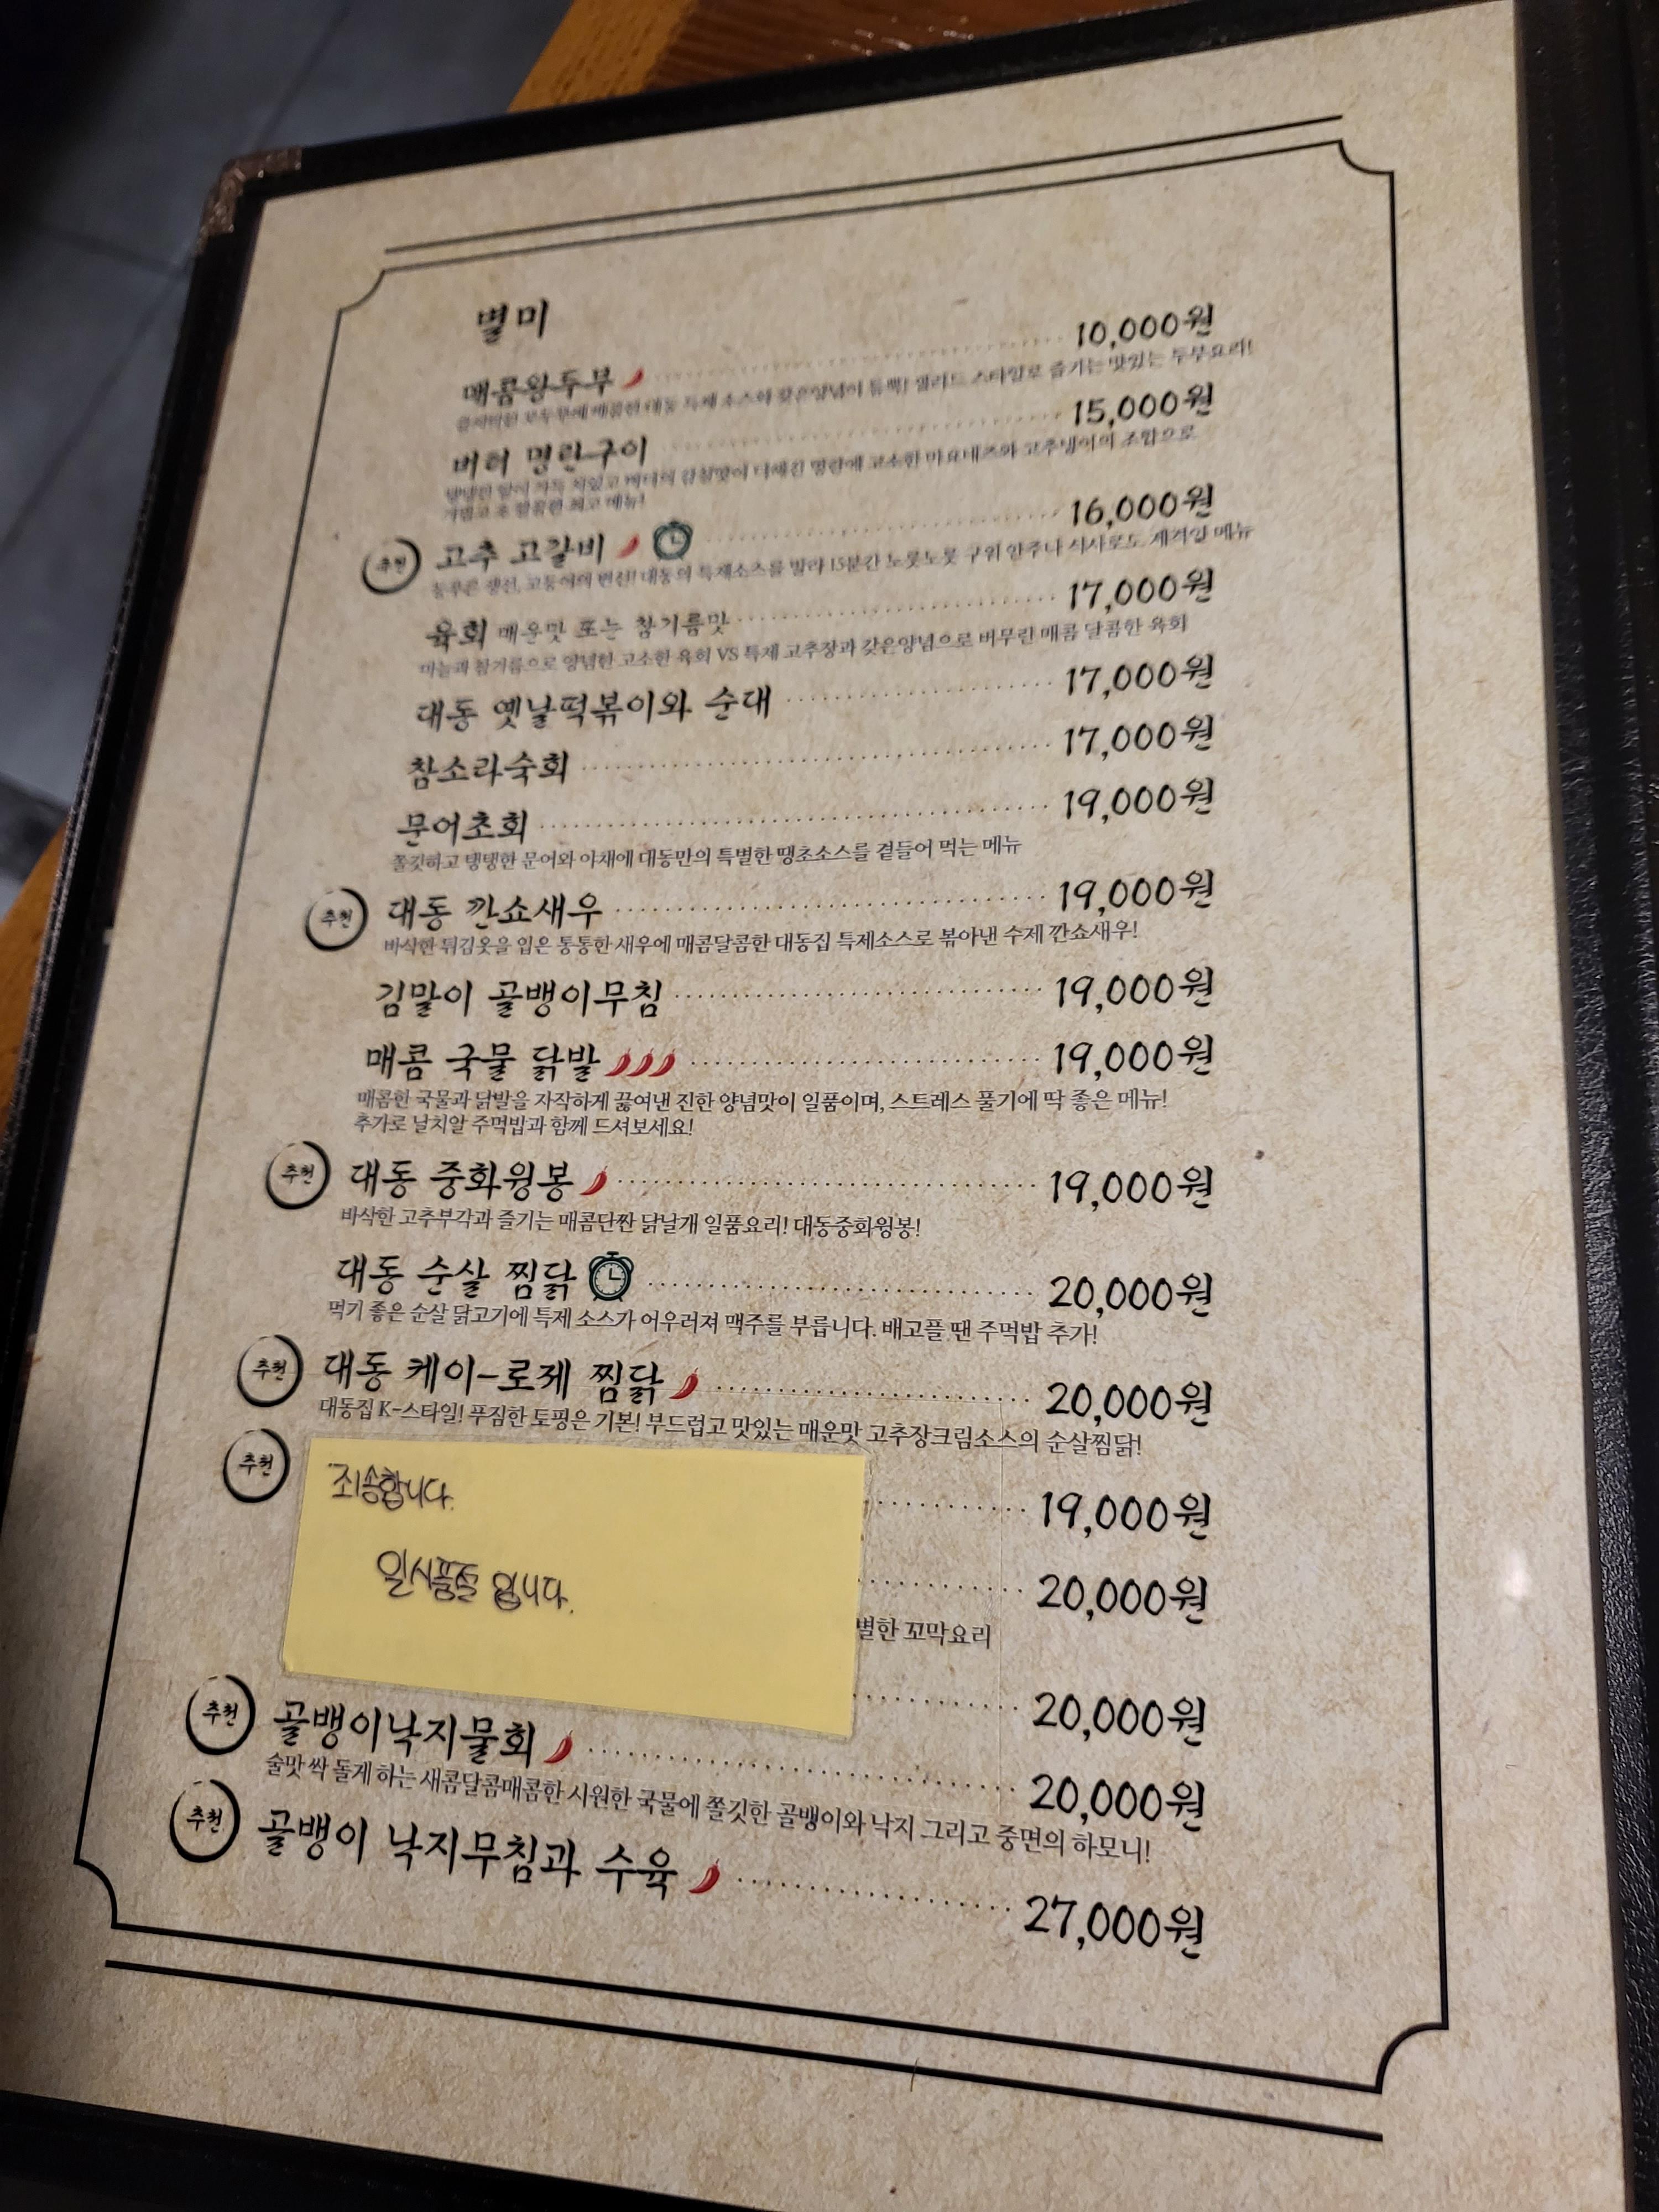 별미
매콤왕두부 10,000원
큼지막한 모두부에 매콤한 대동 특제 소스와 갖은양념이 듬뿍! 샐러드 스타일로 즐기는 맛있는 두부요리!
버터 명란구이 15,000원
탱탱한 알이 가득 차있고 버터의 감칠맛이 더해진 명란에 고소한 마요네즈와 고추냉이의 조합으로
최고 메뉴!
추천 고추 고갈비 16,000원
등푸른 생선, 고등어의 변신! 대동의 특제소스를 발라 15분간 노릇노릇 구워 안주나 식사로도 제격인 메뉴
육회 매운맛 또는 참기름맛 17,000원
마늘과 참기름으로 양념한 고소한 육회 VS 특제 고추장과 갖은양념으로 버무린 매콤 달콤한 육회
대동 옛날떡볶이와 순대 17,000원
참소라숙회 17,000원
문어초회 19,000원
쫄깃하고 탱탱한 문어와 야채에 대동만의 특별한 땡초소스를 곁들어 먹는 메뉴
추천 대동 깐쇼새우 19,000원
바삭한 튀김옷을 입은 통통한 새우에 매콤달콤한 대동집 특제소스로 볶아낸 수제 깐쇼새우!
김말이 골뱅이무침 19,000원
매콤 국물 닭발 19,000원
매콤한 국물과 닭발을 자작하게 끓여낸 진한 양념맛이 일품이며, 스트레스 풀기에 딱 좋은 메뉴!
추가로 날치알 주먹밥과 함께 드셔보세요!
추천 대동 중화윙봉 19,000원
바삭한 고추부각과 즐기는 매콤단짠 닭날개 일품요리! 대동중화윙봉!
대동 순살 찜닭 20,000원
먹기 좋은 순살 닭고기에 특제 소스가 어우러져 맥주를 부릅니다. 배고플 땐 주먹밥 추가!
추천 대동 케이-로제 찜닭 20,000원
대동집 K-스타일! 푸짐한 토핑은 기본! 부드럽고 맛있는 매운맛 고추장크림소스의 순살찜닭!
추천 19,000원
죄송합니다.
일시품절 입니다.
20,000원
별한 꼬막요리
20,000원
추천 골뱅이낙지물회 20,000원
술맛 싹 돌게 하는 새콤달콤매콤한 시원한 국물에 쫄깃한 골뱅이와 낙지 그리고 중면의 하모니!
추천 골뱅이 낙지무침과 수육 27,000원